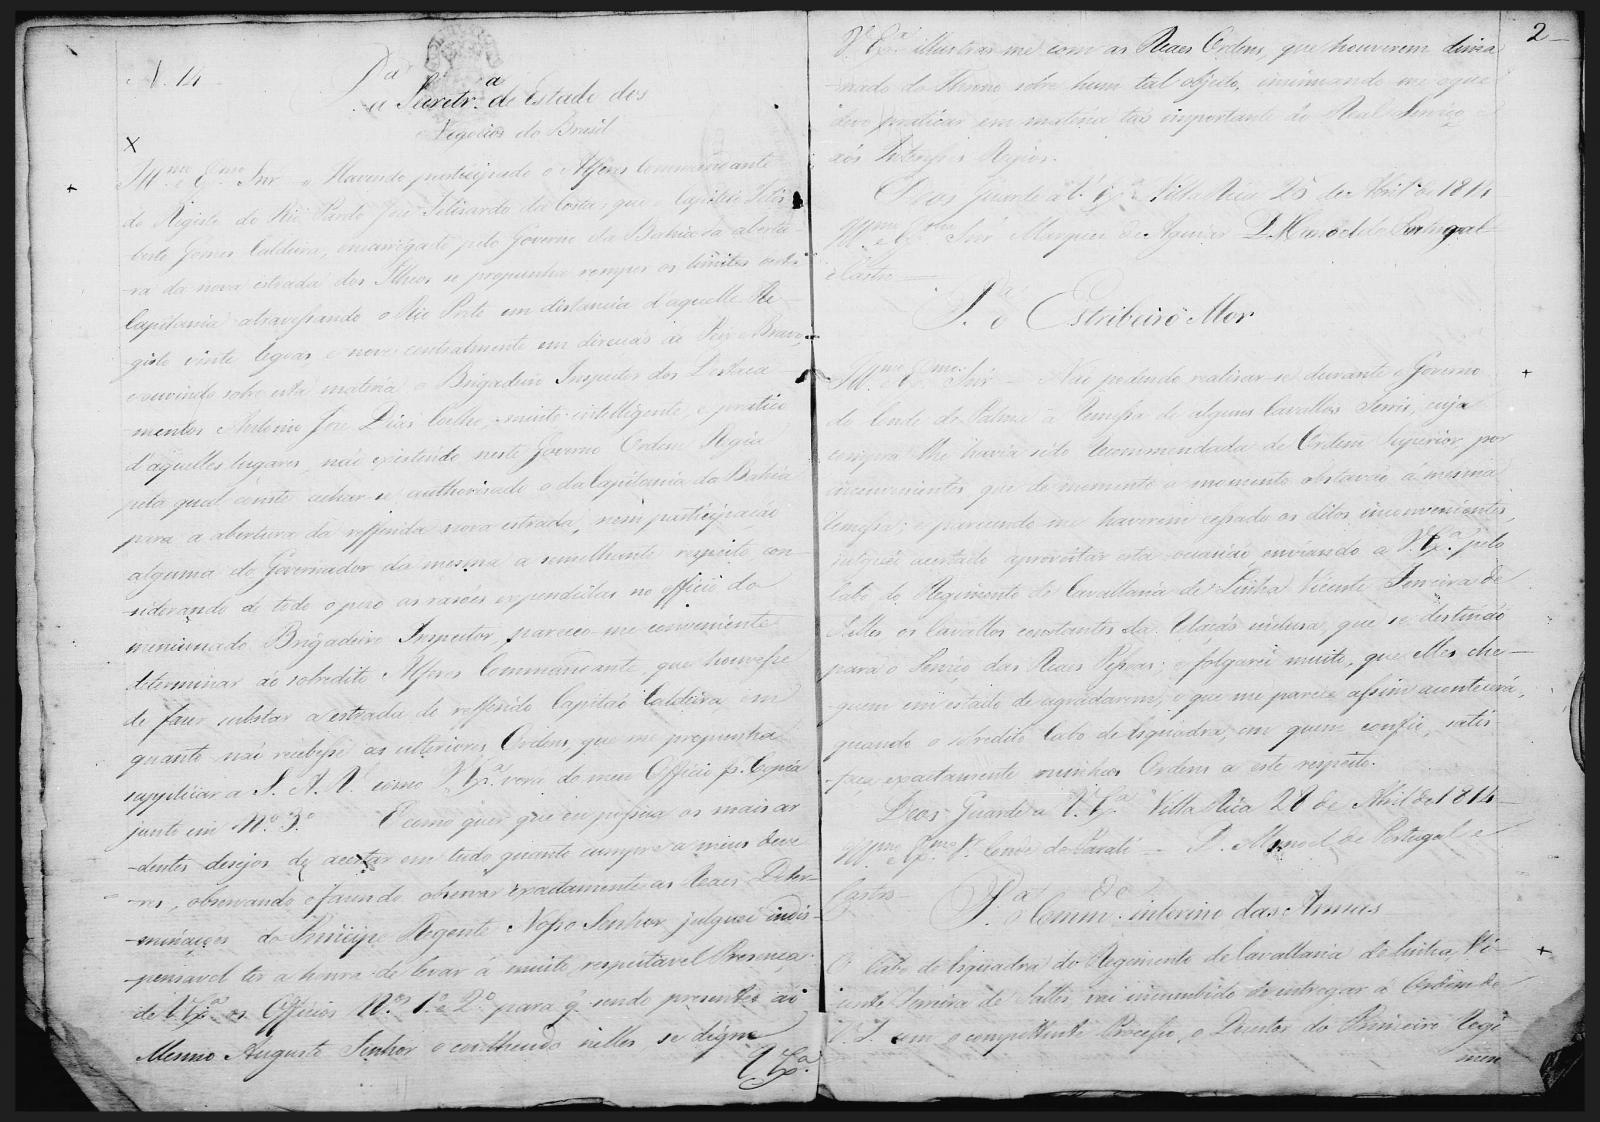 N. 14
Pa
a Secretr.a de Estado dos
Negocios do Brasil
Ill.mo e Ex.mo Snr. Havendo participado o Alferes Commandante
do Registo do Rio Pardo José Felisardo da Costa, que o Capitão Felis-
berto Gomes Caldeira, encarregado pelo Governo da Bahia da abertu-
-ra da nova estrada dos Ilheos se propunha romper os limites desta
Capitania atravessando o Rio Preto em distancia d'aquelle Re-
gisto vinte legoas, e nove centralmente em direcção ao
e ouvindo sobre esta materia o Brigadeiro Inspector dos Destaca-
mentos Antonio José Dias Coelho, muito intelligente, e pratico
d'aquelles lugares, não existindo neste Governo Ordem Regia
pela qual conste achar-se authorisado o da Capitania da Bahia
para a abertura da refferida nova estrada, nem participação
alguma do Governador da mesma a semelhante respeito con-
-siderando de todo o pezo as rasões expendidas no officio do
mencionado Brigadeiro Inspector, pareceo-me conveniente
determinar ao sobredito Alferes Commandante, que houvesse
de fazer sustar a estrada do refferido Capitão Caldeira, em
quanto não recebesse as ulteriores Ordens, que me propunha
supplicar a S. A. R. como V. Ex.a verá do meu Officio p. Copia
junto em N.o 3.o E como quer que eu possua os mais ar
-dentes desejos de acertar em tudo quanto cumpre a meus deve
-res, observando e fazendo observar exactamente as Reaes Deter-
-minações do Principe Regente Nosso Senhor julguei indis-
-pensavel ter a honra de levar á muito respeitavel Presença
de V. Ex.a os Officios N.os 1.o e 2.o para q. sendo presentes ao
Mesmo Augusto Senhor o conthendo nelles se digne
V. Ex.a
2
V. Ex.a illustrar-me com as Reaes Ordens, que houverem dima
-nado do Throno sobre hum tal objecto, ensinando-me o que
devo praticar em materia tão importante ao Real Serviço, e
aos Interesses Regios.
Deos Guarde a V. Ex.a Villa Rica 25 de Abril de 1814
Ill.mo e Ex.mo Snr. Marquez de Aguiar D. Manoel de Portugal
e Castro
P.a o Estribeiro Mor
Ill.mo e Ex.mo Snr. Não podendo realisar-se durante o Governo
do Conde de Palma a remessa de alguns Cavallos cuja
compra lhe havia sido recommendada de Ordem Superior, por
inconvenientes que de momento a momento obstavão á mesma
remessa; e parecendo-me haverem cessado os ditos inconvenientes,
julguei acertado aproveitar esta occasião enviando a V. Ex.a pelo
Cabo do Regimento de Cavallaria de Linha Vicente Ferreira de
Salles os Cavallos constantes da Relação inclusa, que se destinão
para o Serviço das Reaes Pessoas; e folgarei muito, que elles che-
-guem em estado de agradarem; o que me parece assim acontecerá,
quando o sobredito Cabo de Esquadra, em quem confio, satis-
-faça exactamente minhas Ordens a este respeito.
Deos Guarde a V. Ex.a Villa Rica 28 de Abril de 1814
Ill.mo e Ex.mo S.r Conde de Parati D. Manoel de Portugal e
Castro
P.a o Comm.de interino das Armas
O Cabo de Esquadra do Regimento de Cavallaria de Linha, Vi-
cente Ferreira de Salles, vai incumbido de entregar á Ordem de
V. S. com o competente Processo, o Desertor do Primeiro Regi-
men